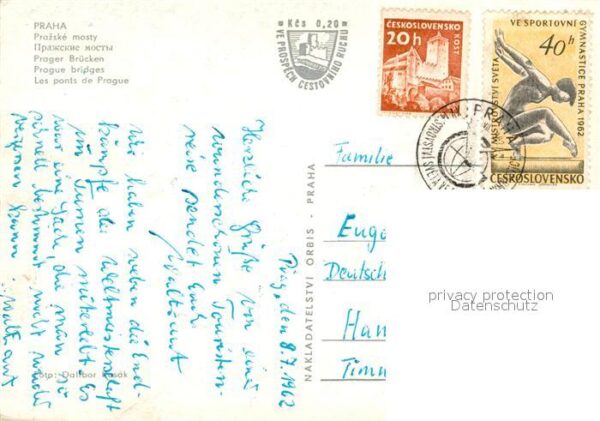 PRAHA
Pražské mosty
Пражские мосты
Prager Brücken
Prague bridges
Les ponts de Prague
Kčs 0,20
VE PROSPĚCH CESTOVNÍHO RUCHU
ČESKOSLOVENSKO
20h
KOST
VE SPORTOVNÍ
GYMNASTICE PRAHA 1962
MISTROVSTVÍ SVĚTA
40h
ČESKOSLOVENSKO
PRAHA
Prag, den 8.7.1962
Herzliche Grüße von einer
wunderschönen Touristen-
reise sendet Euch
Wir haben neben die End-
kämpfe der Weltmeisterschaft
im Turnen miterlebt. Es
war eine Sache, die man so
schnell bestimmt nicht wieder
vergessen kann.
Familie
Euge
Deutsch
Han
NAKLADATELSTVÍ ORBIS - PRAHA
Foto: Dalibor
privacy protection
Datenschutz